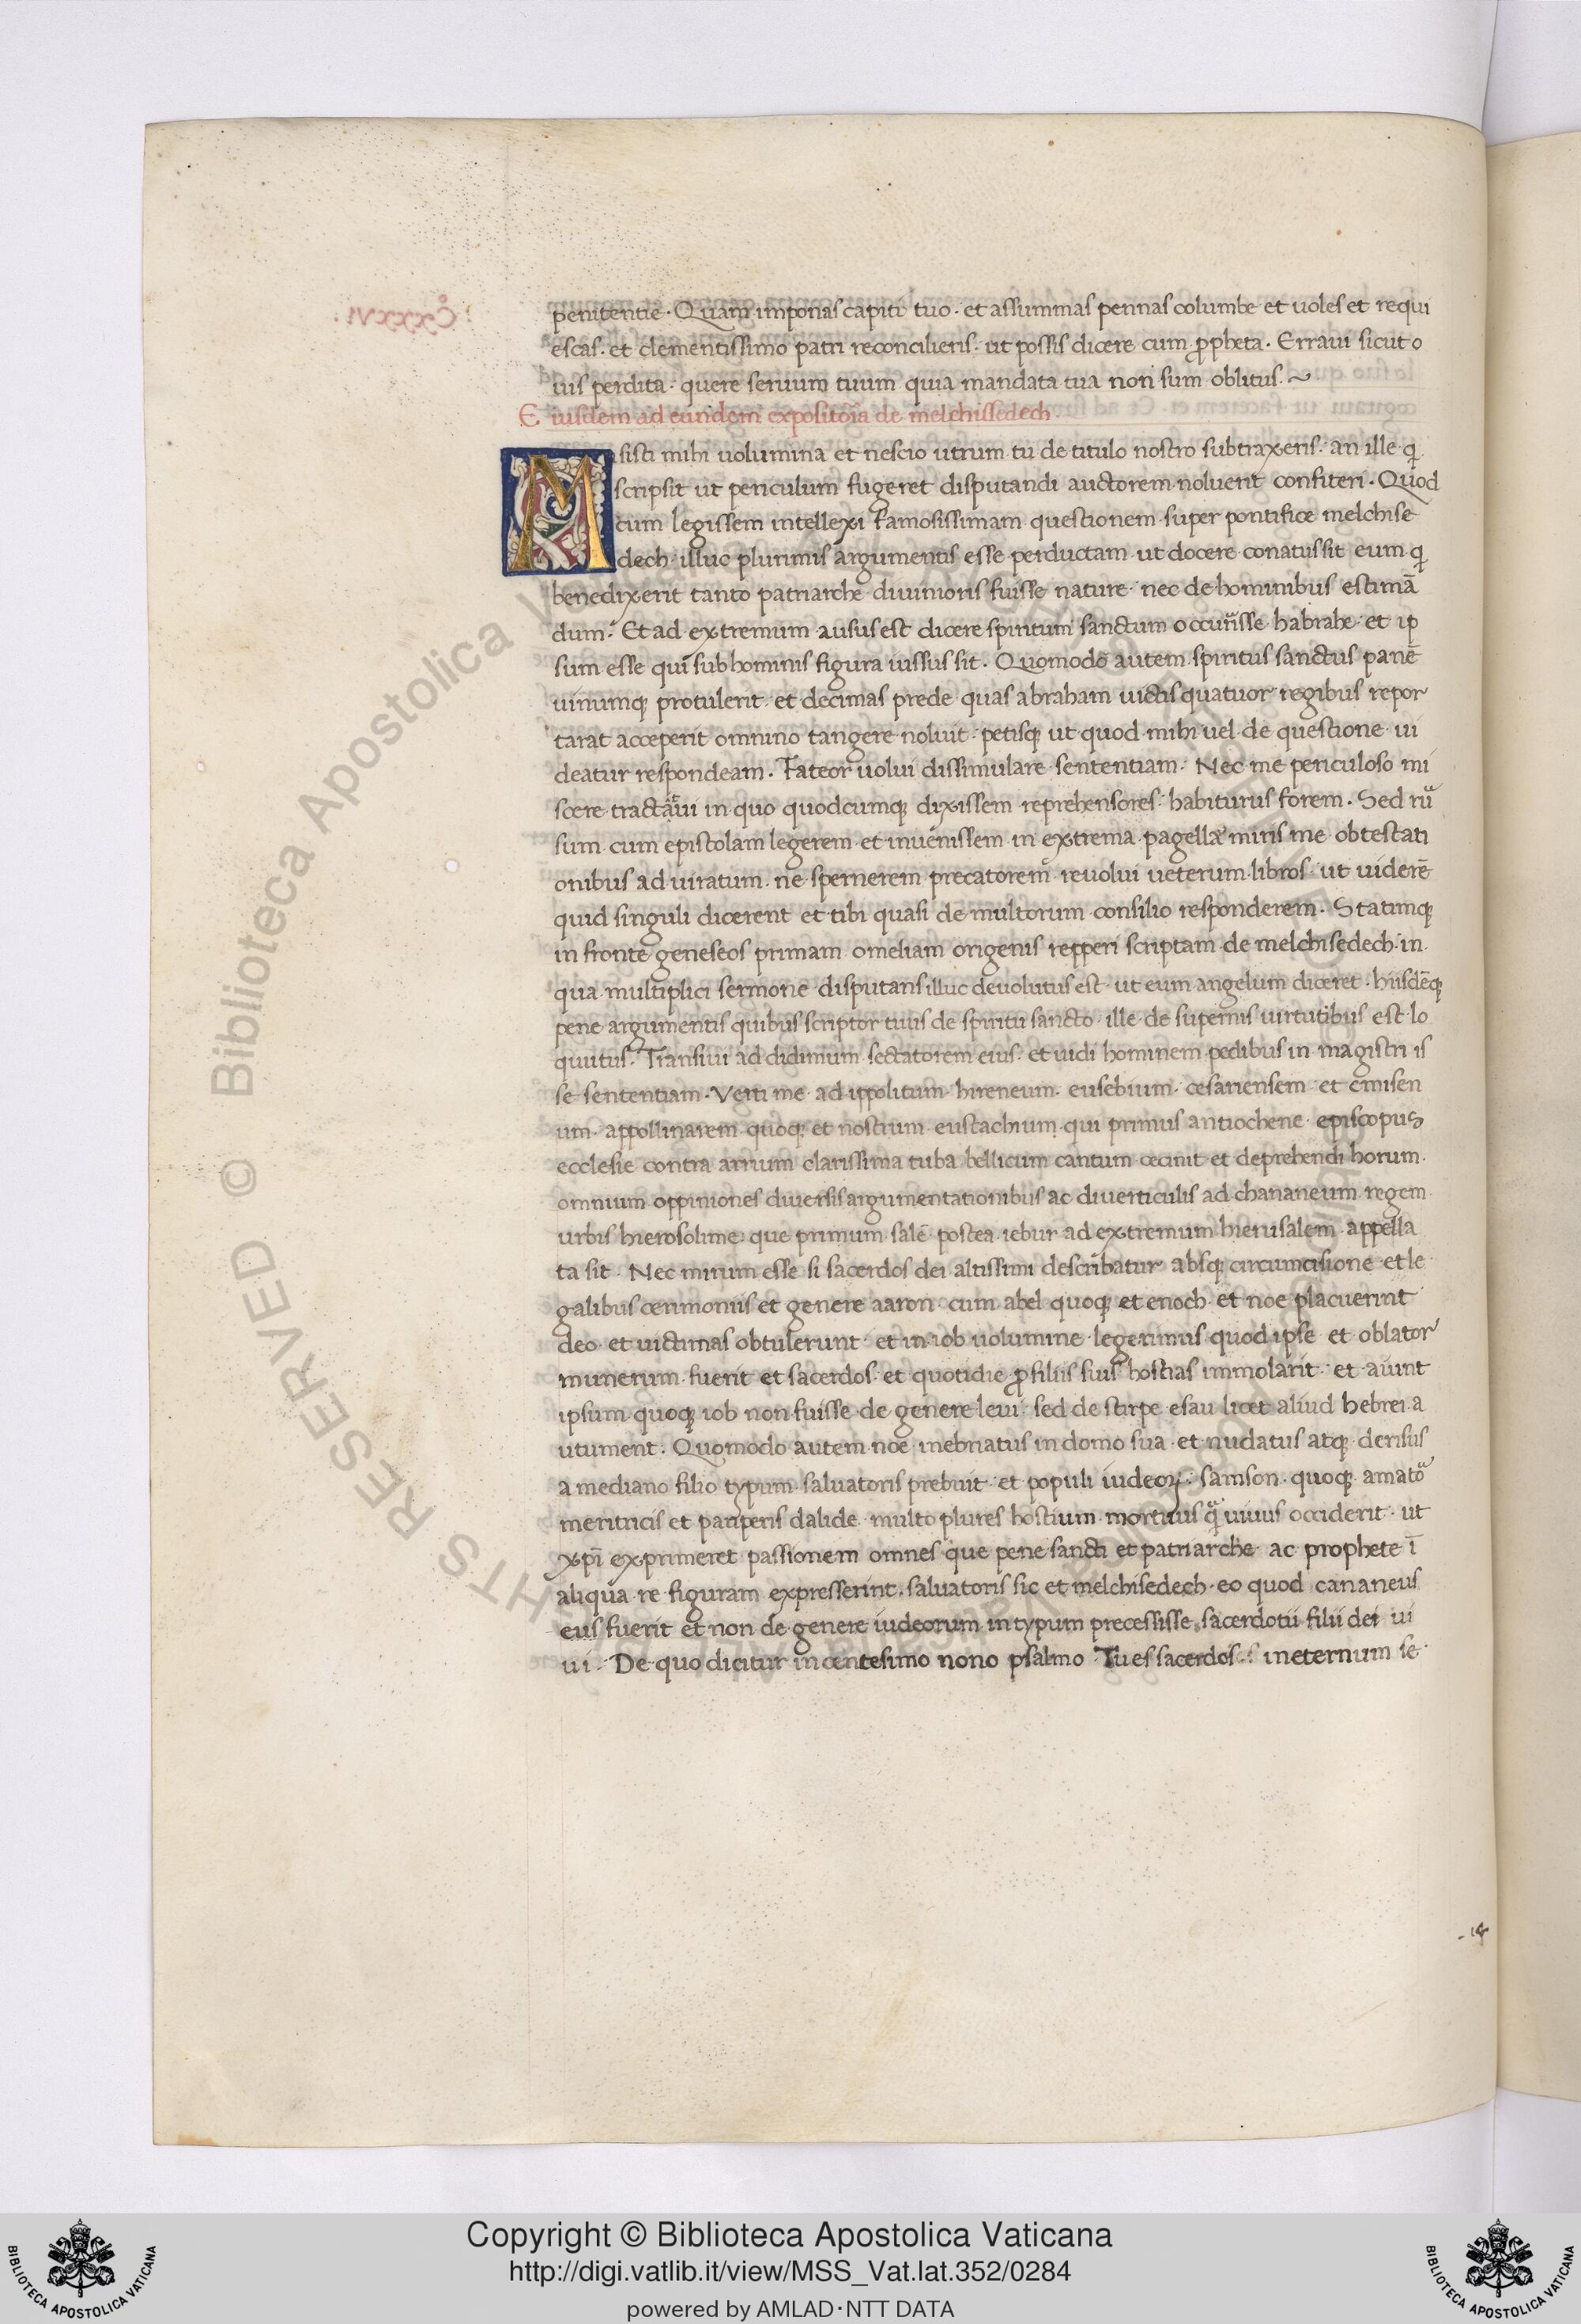 penitentie · Quam imponas capiti tuo · et assummas pennas columbe et uoles et requi
escas · et clementissimo patri reconcilieris · ut possis dicere cum ꝓpheta · Erraui sicut o
uis perdita · quere seruum tuum quia mandata tua non sum oblitus · ~
Eiusdem ad eundem expositōia de melchissedech .
Misisti mihi uolumina et nescio utrum tu de titulo nostro subtraxeris · an ille q̇
scripsit ut periculum fugeret disputandi auctorem noluerit confiteri · Quod
cum legissem intellexi famosissimam questionem super pontifice melchise
dech · illuc plurimis argumentis esse perductam ut docere conatus sit eum q̇
benedixerit tanto patriarche diuinioris fuisse nature · nec de hominibus estimā
dum · Et ad extremum ausus est dicere spiritum sanctum occurrisse habrahe · et ip
sum esse qui sub hominis figura uissus sit · Quomodo autem spiritus sanctus panē
uinumq; protulerit · et decimas prede quas abraham uictis quatuor regibus repor
tarat acceperit omnino tangere noluit · petisq; ut quod mihi uel de questione ui
deatur respondeam · Fateor uolui dissimulare sententiam · Nec me periculoso mi
scere tractatui in quo quodcumq; dixissem reprehensores habiturus forem · Sed rur
sum cum epistolam legerem et inuenissem in extrema pagella miris me obtestati
onibus ad uiratum · ne spernerem precatorem reuolui ueterum libros · ut uiderē
quid singuli dicerent et tibi quasi de multorum consilio responderem · Statimq;
in fronte geneseos primam omeliam origenis repperi scriptam de melchisedech · in
qua multiplici sermone disputans illuc deuolutus est · ut eum angelum diceret · hiisdēq;
pene argumentis quibus scriptor tuus de spiritu sancto · ille de supernis uirtutibus est lo
quutus · Transiui ad didimum sectatorem eius · et uidi hominem pedibus in magistri is
se sententiam · Verti me ad ippolitum · hireneum · eusebium · cesariensem et emisen
um · appollinarem quoq; et nostrum eustachium · qui primus antiochene episcopus
ecclesie contra arrium clarissima tuba bellicum cantum cecinit et deprehendi horum
omnium oppiniones diuersis argumentationibus ac diuerticulis ad chananeum regem
urbis hierosolime · que primum salē postea iebur ad extremum hierusalem appella
ta sit · Nec mirum esse si sacerdos dei altissimi describatur absq; circumcisione et le
galibus cerimoniis et genere aaron cum abel quoq; et enoch · et noe placuerint
deo et uictimas obtulerunt · et in iob uolumine legerimus quod ipse et oblator
munerum fuerit et sacerdos · et quotidie ꝓ filiis suis hostias immolarit · et aiunt
ipsum quoq; iob non fuisse de genere leui · sed de stirpe esau licet aliud hebrei a
utument · Quomodo autem noe inebriatus in domo sua · et nudatus atq; derisus
a mediano filio typum saluatoris prebuit · et populi iudeoꝝ · samson quoq; amatōr
meritricis et pauperis dalide multo plures hostium mortuus q̄ uiuus occiderit · ut
xp̄i exprimeret passionem omnes que pene sancti et patriarche ac prophete ī
aliqua re figuram expresserint · saluatoris sic et melchisedech · eo quod cananeus
eus fuerit et non de genere iudeorum in typum precessisse sacerdotii filii dei ui
ui · De quo dicitur in centesimo nono psalmo Tu es sacerdos · : in eternum se
Cͦxxxvi
Copyright © Biblioteca Apostolica Vaticana
http://digi.vatlib.it/view/MSS_Vat.lat.352/0284
powered by AMLAD·NTT DATA
BIBLIOTECA APOSTOLICA VATICANA
BIBLIOTECA APOSTOLICA VATICANA